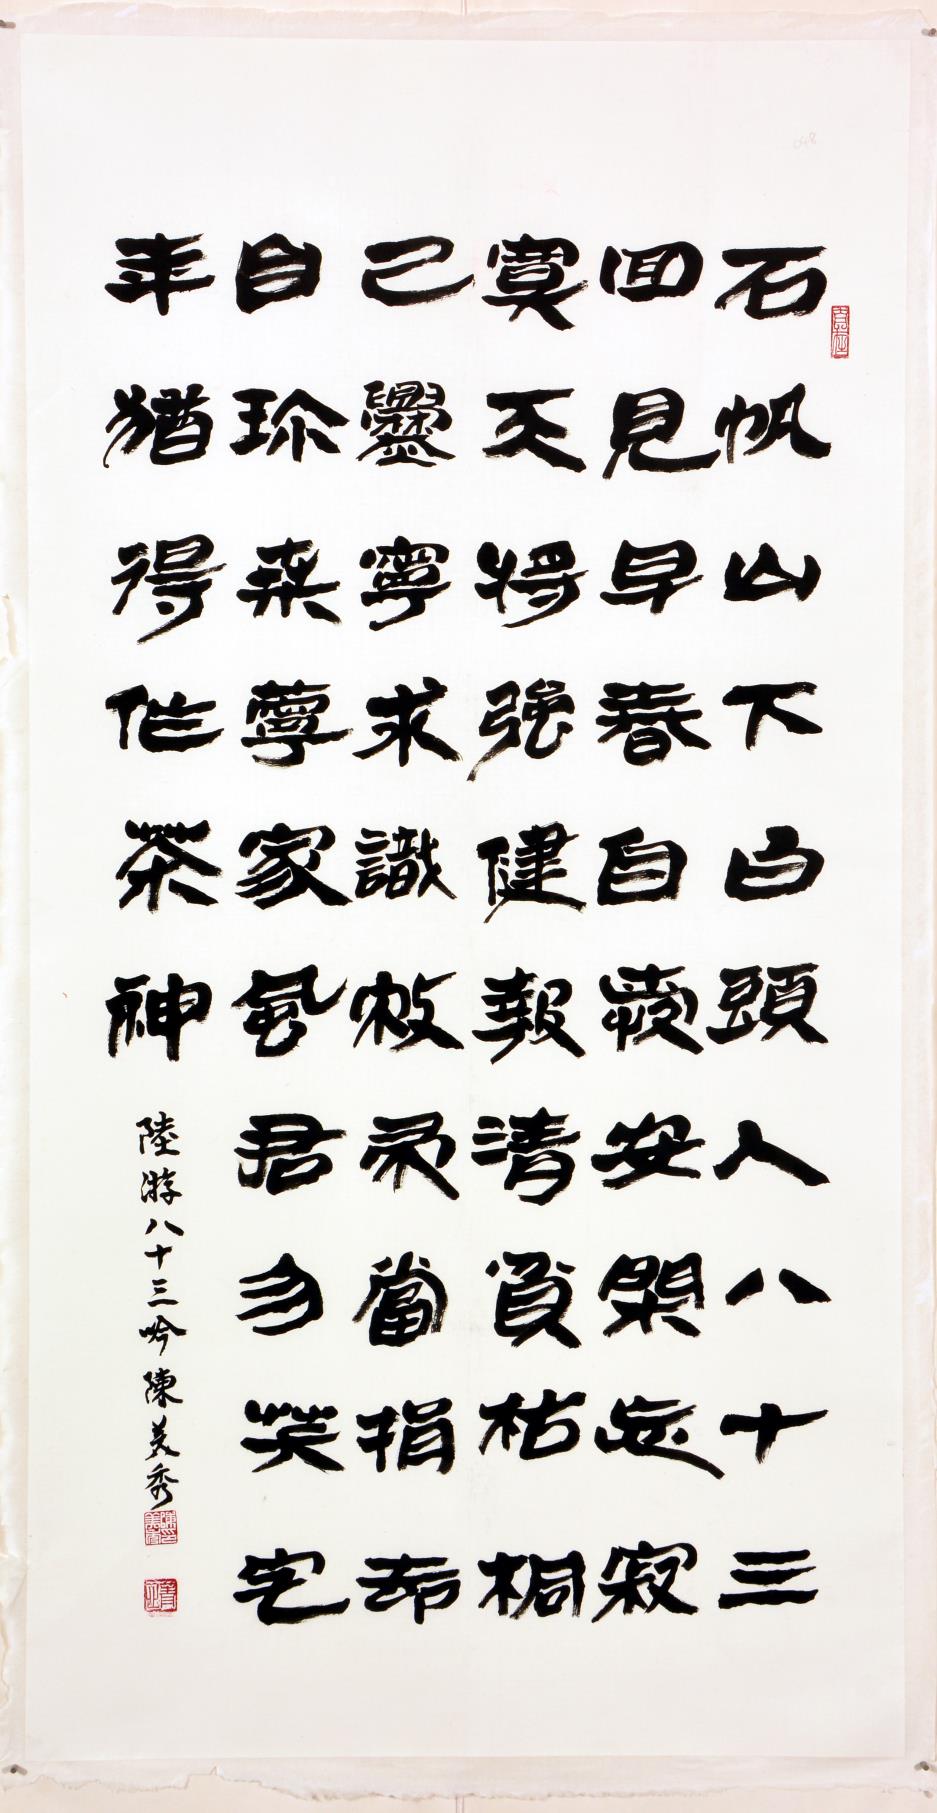 石帆山下白頭人八十三
回見早春自愛安閑忘寂
寞天將強健報清貧枯桐
已爨寧求識敝帚當捐却
自珍桑薴家風君勿笑它
年猶得作茶神
陸游八十三吟陳美秀